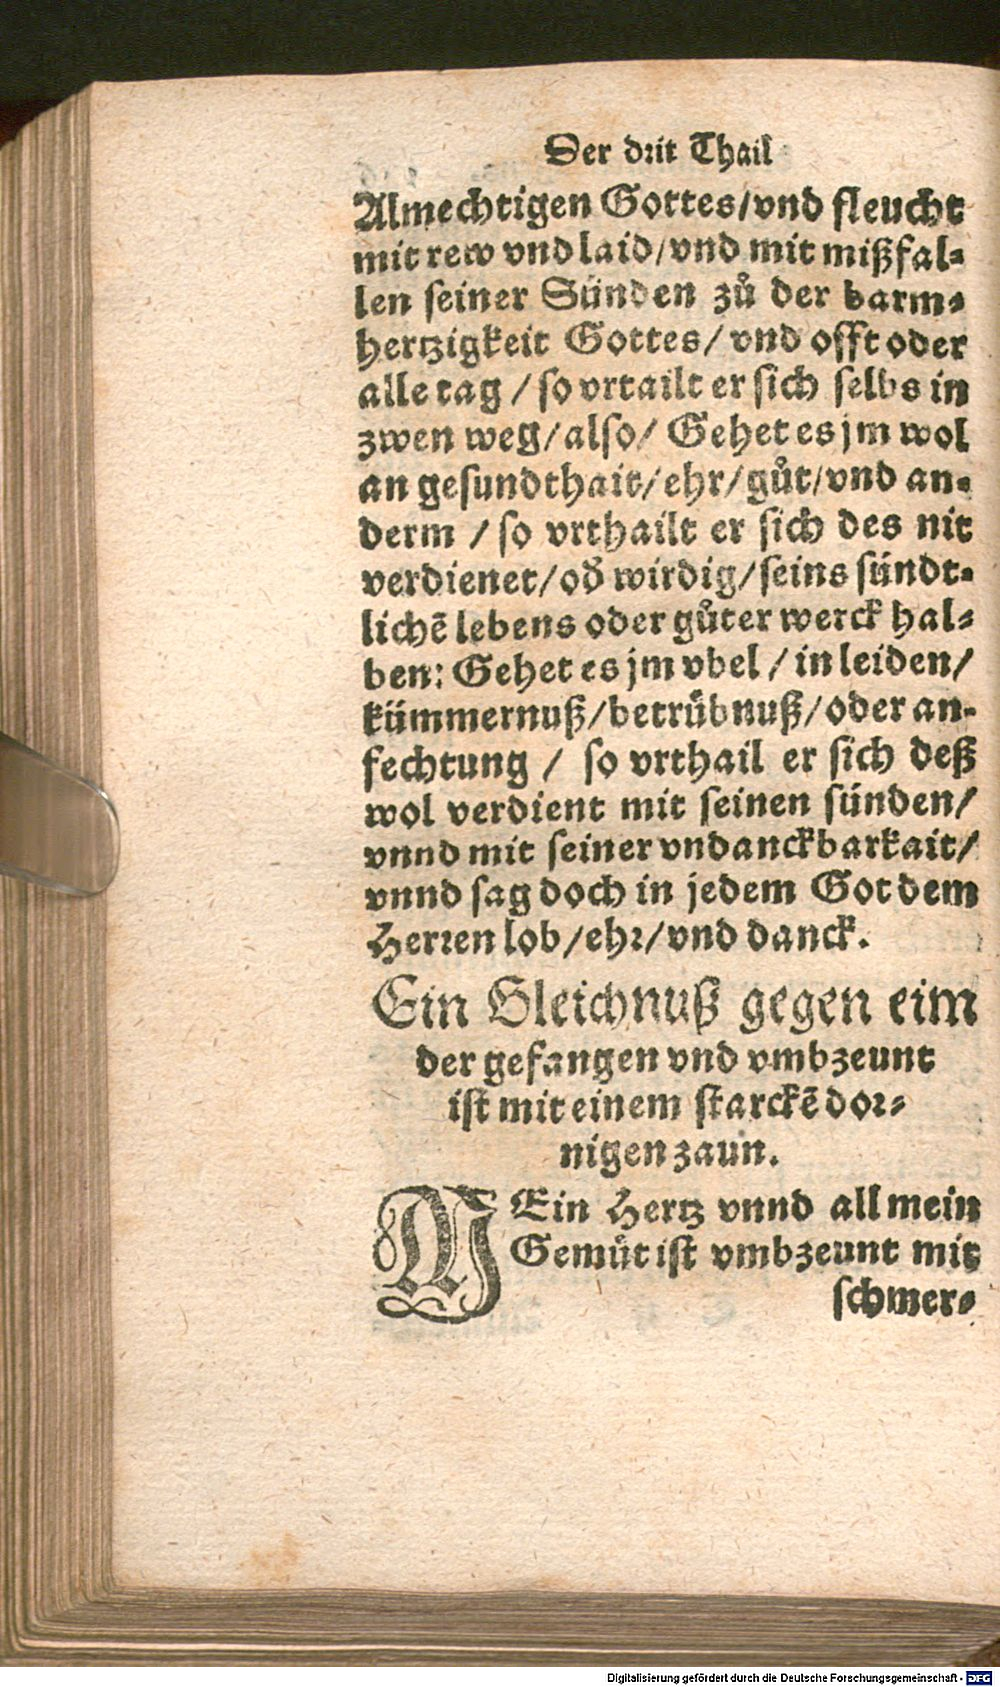 Der drit Thail
Almechtigen Gottes/vnd fleucht
mit rew vnd laid/vnd mit mißfal-
len seiner Sünden zů der barm-
hertzigkeit Gottes/ vnd offt oder
alle tag / so vrtailt er sich selbs in
zwen weg/also/ Gehet es jm wol
an gesundthait/ehr/gůt/vnd an-
derm / so vrthailt er sich des nit
verdienet/od̄ wirdig/seins sündt-
lichē lebens oder gůter werck hal-
ben: Gehet es jm vbel / in leiden/
kümmernuß/betrůbnuß/oder an-
fechtung / so vrthail er sich deß
wol verdient mit seinen sünden/
vnnd mit seiner vndanckbarkait/
vnnd sag doch in jedem Got dem
Herren lob/ehr/vnd danck.
Ein Gleichnuß gegen eim
der gefangen vnd vmbzeunt
ist mit einem starckē dor-
nigen zaun.
MEin Hertz vnnd all mein
Gemůt ist vmbzeunt mit
schmer-
Digitalisierung gefördert durch die Deutsche Forschungsgemeinschaft - DFG